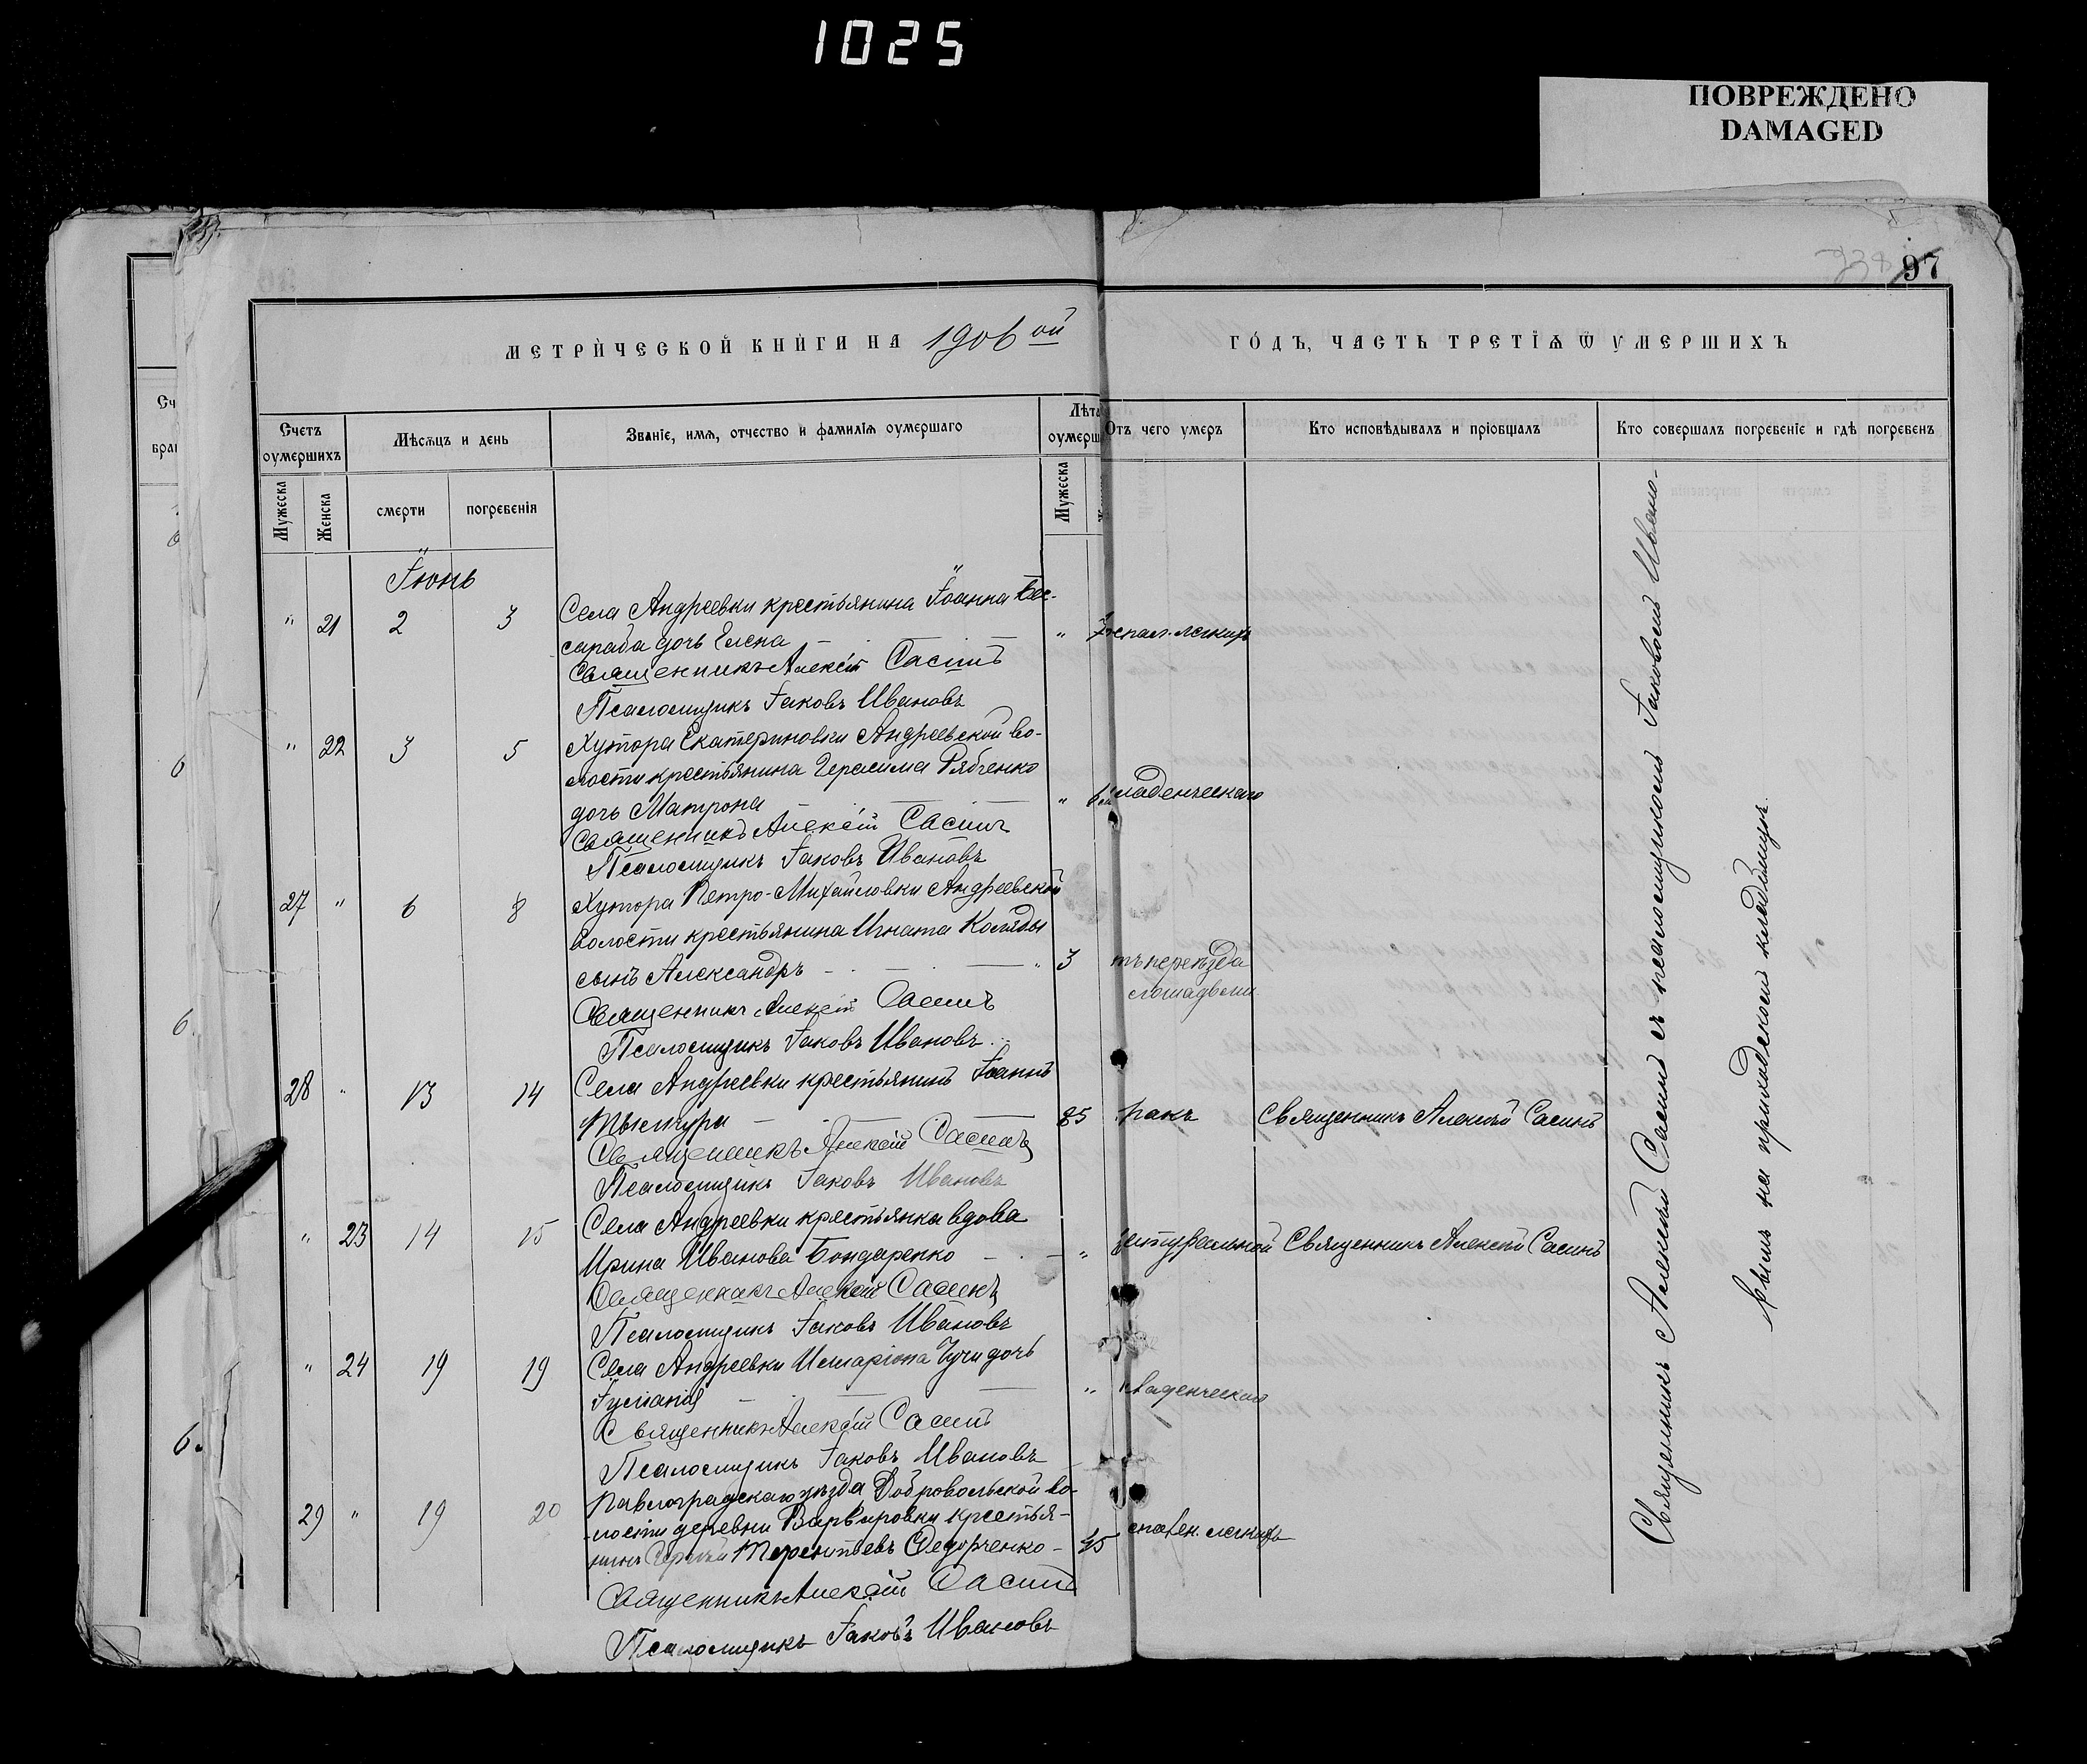 1025
ПОВРЕЖДЕНО
DAMAGED
97
МЕТРИЧЕСКОЙ КНИГИ НА 1906ой ГОДЪ, ЧАСТЬ ТРЕТІѦ Ѿ УМЕРШИХЪ
Счетъ оумершихъ
Мѣсѧцъ и день
Званіе, имѧ, отчество и фамиліѧ оумершаго
Лѣта оумерш
Отъ чего умеръ
Кто исповѣдывалъ и пріобщалъ
Кто совершалъ погребеніе и гдѣ погребенъ
Мужеска
Женска
смерти
погребенія
Мужеска
Іюнь
" 21 2 3 Села Андреевки крестьянина Іоанна Бес-
сараба дочь Елена " воспал. легкихъ
Священникъ Алексій Сасинъ
Псаломщикъ Іаковъ Ивановъ
" 22 3 5 Хутора Екатериновки Андреевской во-
лости крестьянина Герасима Рябченко
дочь Матрона " 6 младенческаго
Священникъ Алексій Сасинъ
Псаломщикъ Іаковъ Ивановъ
27 " 6 8 Хутора Петро-Михайловки Андреевской
волости крестьянина Игната Коляды
сынъ Александръ 3 тъ переѣзда
лошадьми.
Священникъ Алексій Сасинъ
Псаломщикъ Іаковъ Ивановъ
28 " 13 14 Села Андреевки крестьянинъ Іоаннъ
85 ракъ Священникъ Алексій Сасинъ
Священникъ Алексій Сасинъ
Псаломщикъ Іаковъ Ивановъ
" 23 14 15 Села Андреевки крестьянка вдова
Ирина Иванова Бондаренко " Священникъ Алексій Сасинъ
Священникъ Алексій Сасинъ
Псаломщикъ Іаковъ Ивановъ
" 24 19 19 Села Андреевки Илларіона дочь
Іуліанія " младенческаго
Священникъ Алексій Сасинъ
Псаломщикъ Іаковъ Ивановъ
29 " 19 20 Павлоградскаго уѣзда Добровольской во-
лости деревни Варваровки крестья-
нинъ Сергѣй Терентьевъ Федорченко 45 воспален. легкихъ
Священникъ Алексій Сасинъ
Псаломщикъ Іаковъ Ивановъ
Священникъ Алексій Сасинъ съ псаломщикомъ Іаковомъ Ивано-
вымъ на приходскомъ кладбищѣ.